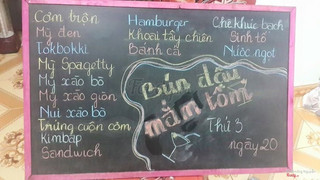 Cơm trộn
Mỳ đen
Tokbokki
Mỳ Spagetty
Mỳ xào bò
Mỳ xào giòn
Nui xào bò
Trứng cuộn cơm
Kimbáp
Sandwich
Hamburger
Khoai tây chiên
Bánh cá
Chè khúc bạch
Sinh tố
Nước ngọt
Bún đậu
mắm tôm
Thứ 3
ngày 20